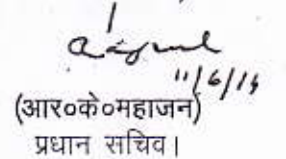 11/6/14
(आर०के०महाजन)
प्रधान सचिव।